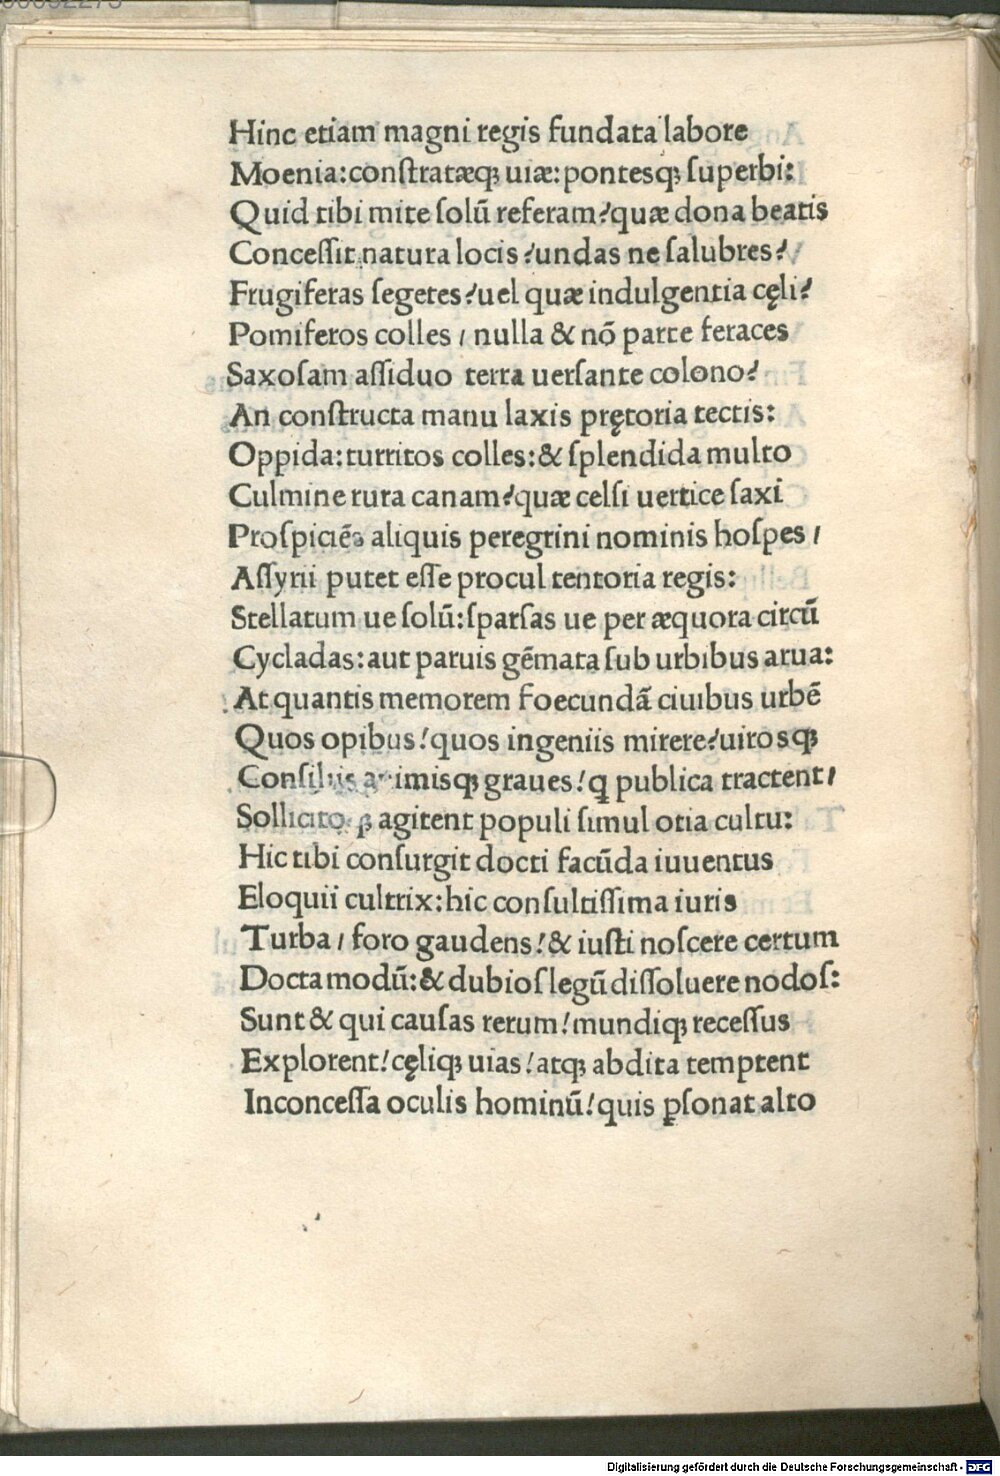 Hinc etiam magni regis fundata labore
Moenia: conſtratæqꝫ uiæ: pontesqꝫ ſuperbi:
Quid tibi mite ſolū referam? quæ dona beatis
Conceſſit natura locis? undas ne ſalubres?
Frugiferas ſegetes? uel quæ indulgentia cęli?
Pomiferos colles / nulla & nō parte feraces
Saxoſam aſſiduo terra uerſante colono?
An conſtructa manu laxis prętoria tectis:
Oppida: turritos colles: & ſplendida multo
Culmine rura canam? quæ celſi uertice ſaxi
Proſpiciēs aliquis peregrini nominis hoſpes /
Aſſyrii putet eſſe procul tentoria regis:
Stellatum ue ſolū: ſparſas ue per æquora circū
Cycladas: aut paruis gēmata ſub urbibus arua:
At quantis memorem foecundā ciuibus urbē
Quos opibus! quos ingeniis mirere? uirosqꝫ
Conſiliis animisqꝫ graues! q publica tractent /
Sollicito ꝓ agitent populi ſimul otia cultu:
Hic tibi conſurgit docti facūda iuuentus
Eloquii cultrix: hic conſultiſſima iuris
Turba / foro gaudens! & iuſti noſcere certum
Docta modū: & dubioſ legū diſſoluere nodoſ:
Sunt & qui cauſas rerum! mundiqꝫ receſſus
Explorent! cęliqꝫ uias! atqꝫ abdita temptent
Inconceſſa oculis hominū! quis ꝑſonat alto
Digitalisierung gefördert durch die Deutsche Forschungsgemeinschaft - DFG